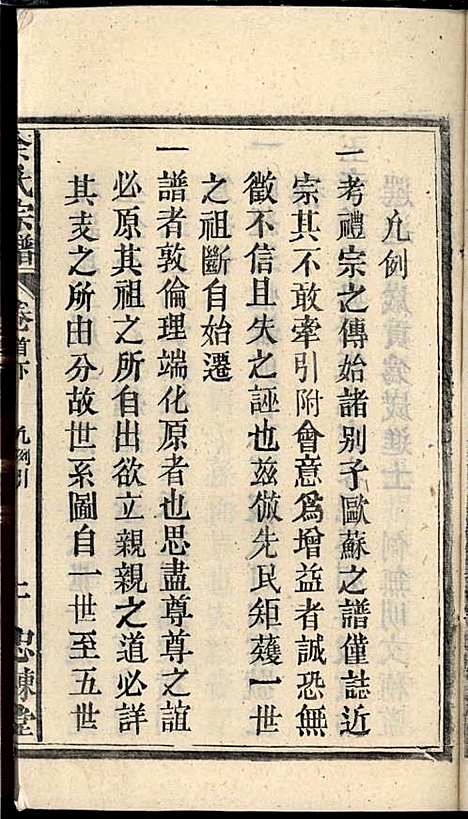 凡例
一考禮宗之傳始諸別子歐蘇之譜僅誌近
宗其不敢牽引附會意爲增益者誠恐無
徵不信且失之誣也茲倣先民矩矱一世
之祖斷自始遷
一譜者敦倫理端化原者也思盡尊尊之誼
必原其祖之所自出欲立親親之道必詳
其支之所由分故世系圖自一世至五世
氏宗譜 卷首下 凡例引 忠諫堂